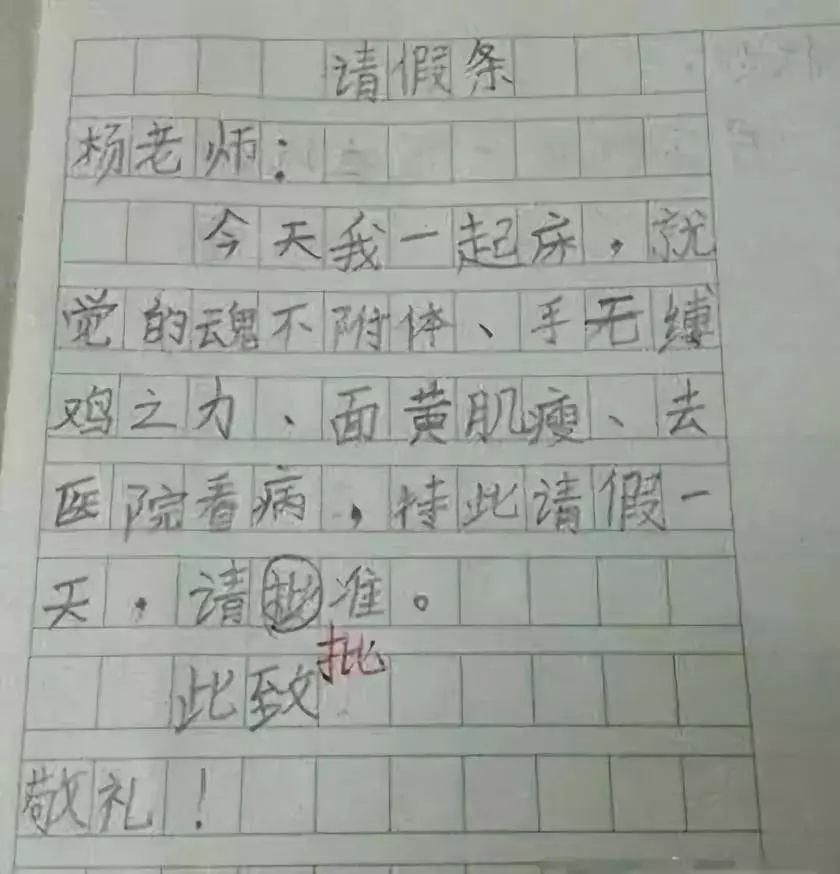 请假条
杨老师：
今天我一起床，就
觉的魂不附体、手无缚
鸡之力、面黄肌瘦、去
医院看病，特此请假一
天，请批准。
批
此致
敬礼！